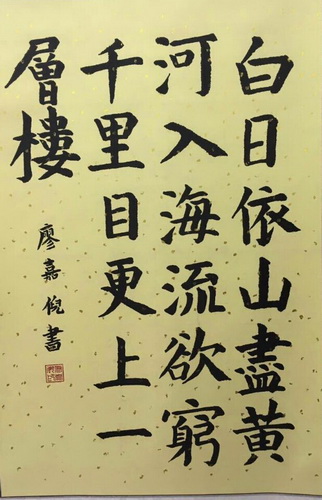 白日依山盡黄
河入海流欲窮
千里目更上一
層樓
廖嘉倪書